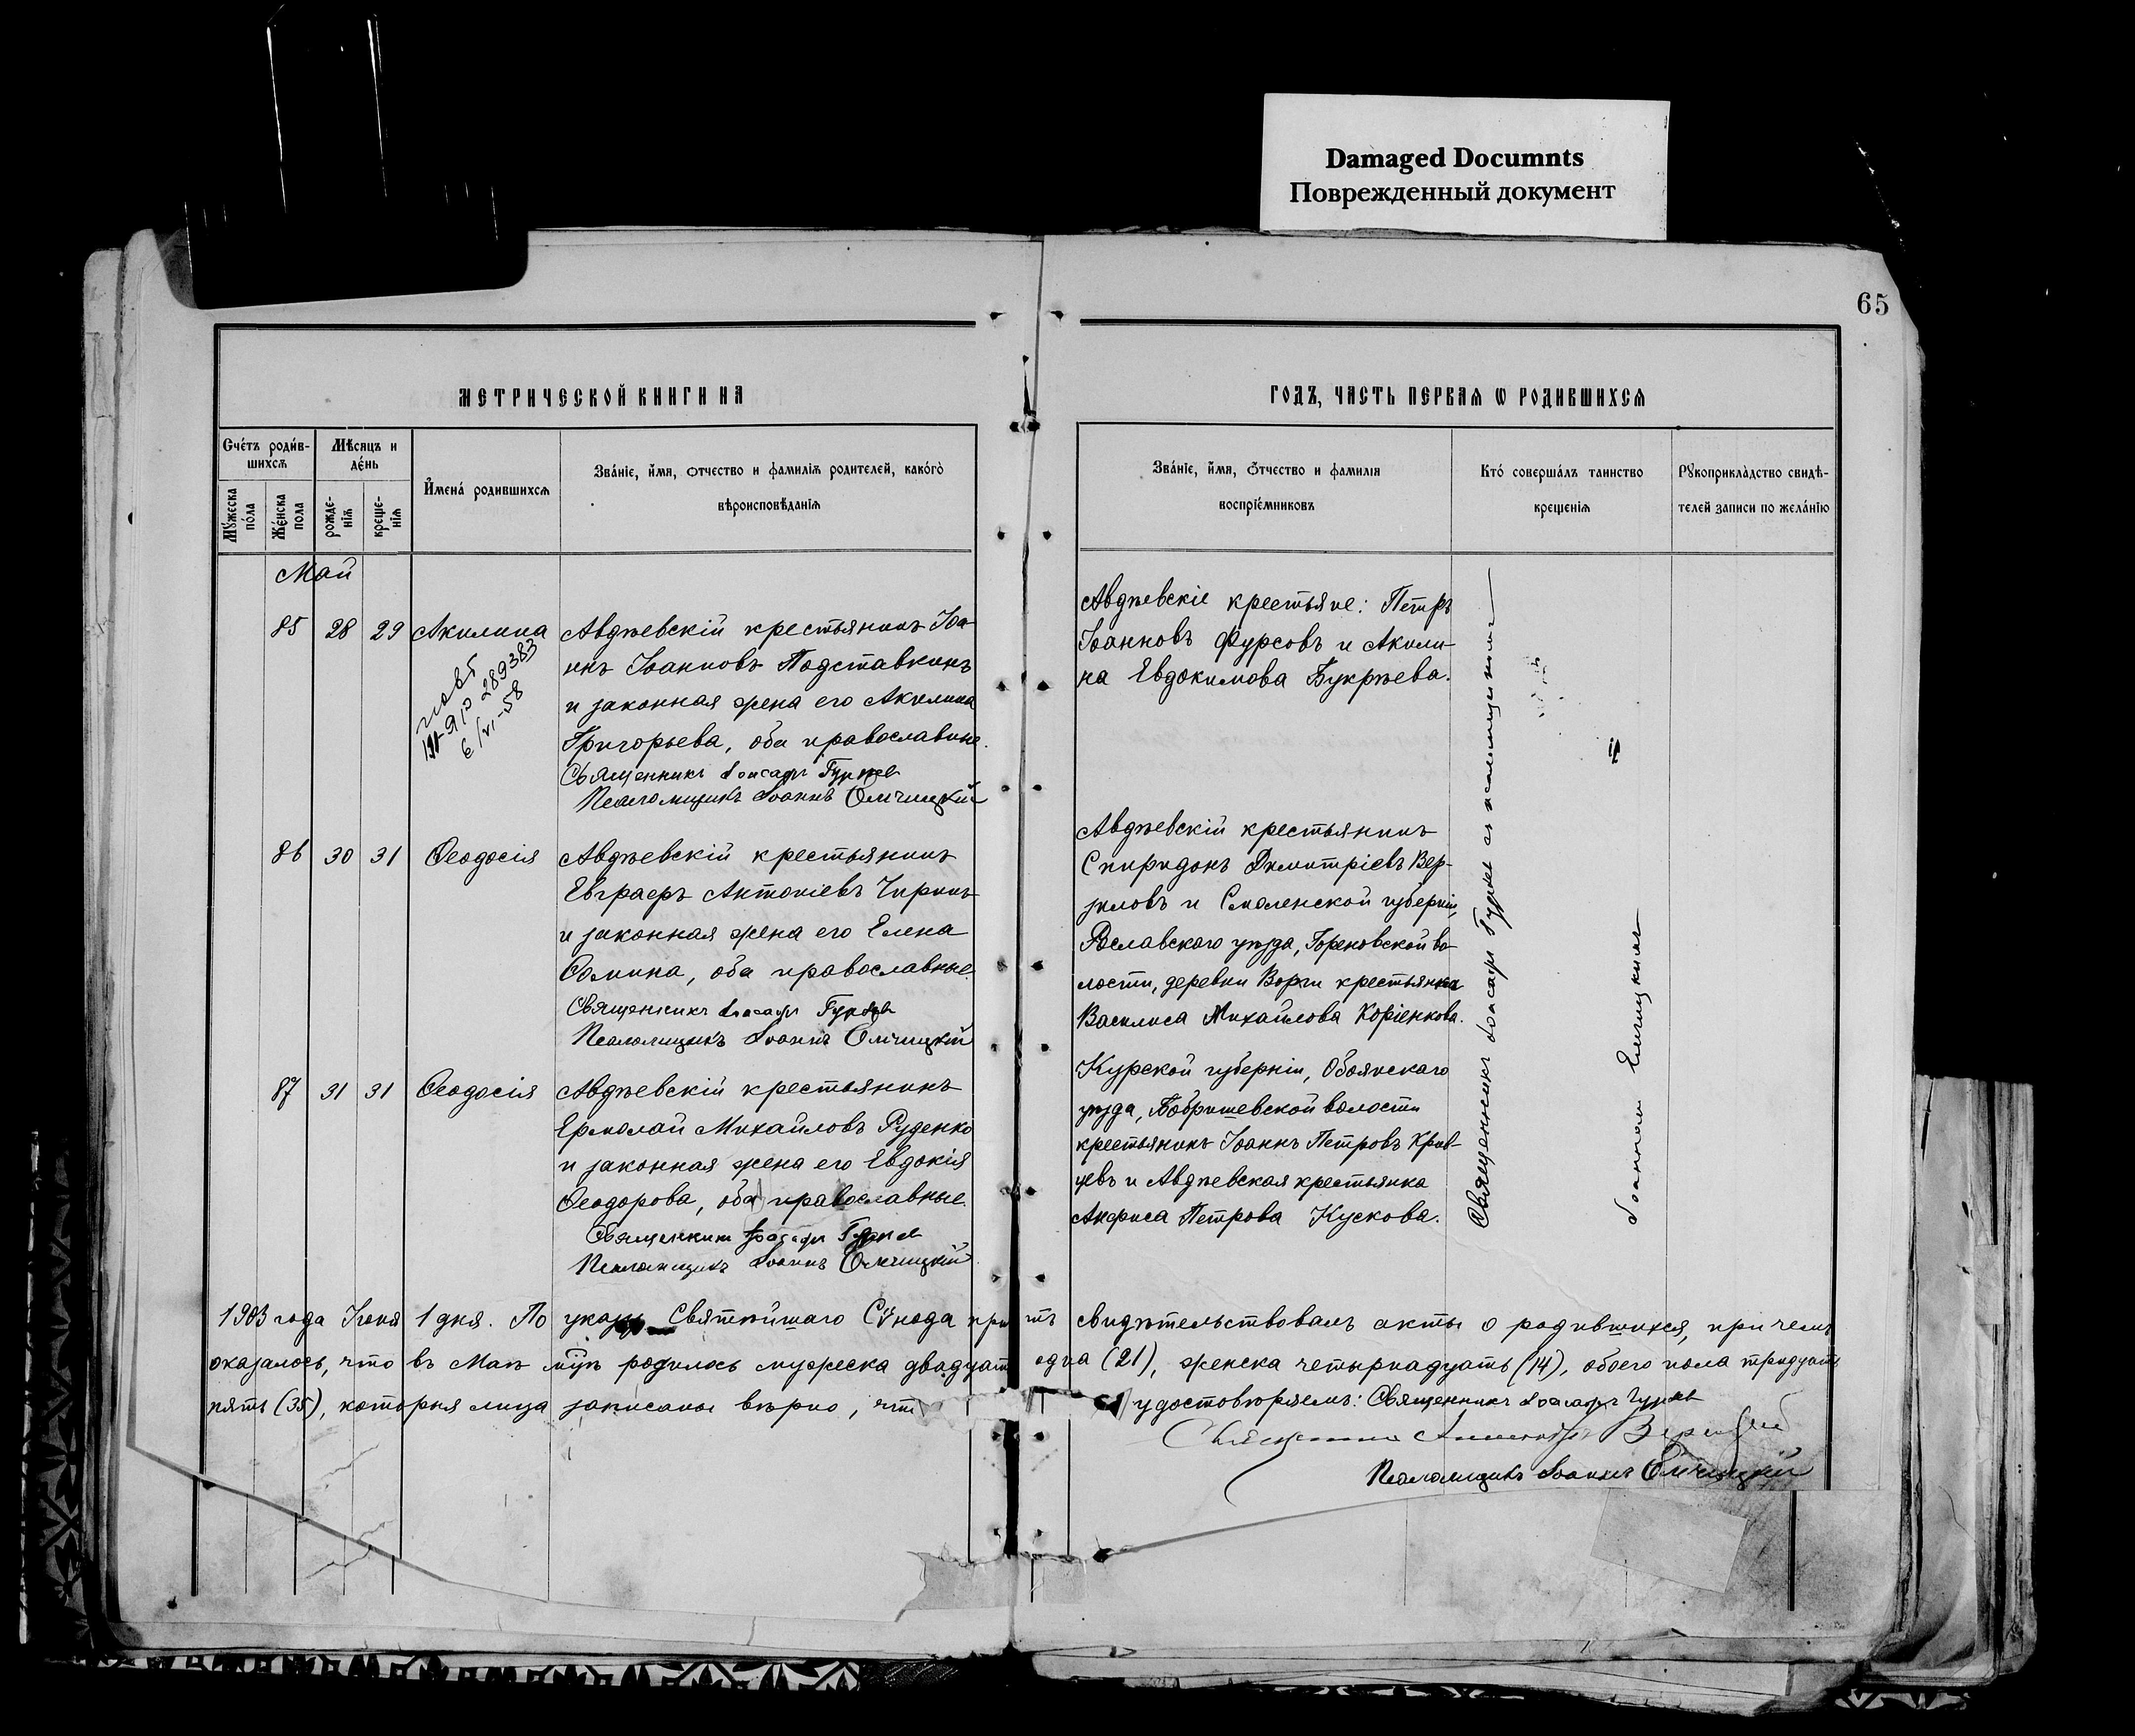 Damaged Documnts
Поврежденный документ
65
МЕТРИЧЕСКОЙ КНИГИ НА
ГОДЪ, ЧАСТЬ ПЕРВАѦ Ѡ РОДИВШИХСѦ
Счéтъ роди́в-
шихсѧ
Мѣсяцъ и
дéнь
Мꙋ́жеска
пóла
Жéнска
пола
рожде-
нїѧ
креще-
нїѧ
И҆менá родившихсѧ
Звáнїе, и҆́мя, ѻтчество и фамилїѧ родителей, какóгѡ
вѣроисповѣданїѧ
Звáнїе, и҆́мя, ѻ҆́тчество и фамилїя
воспрїéмниковъ
Ктó совершáлъ таинство
крещенїѧ
Рꙋкоприклàдство свидѣ-
телей записи по желáнїю
Май
85 28 29 Акилина
Авдѣевскій крестьянинъ Іоа-
ннъ Іоанновъ Подставкинъ
и законная жена его Акилина
Григорьева, оба православные.
Священникъ Іоасафъ Гурьев
Псаломщикъ Іоаннъ
289383
6/VI-58
Авдѣевскіе крестьяне: Петръ
Іоанновъ Фурсовъ и Акили-
на Евдокимова Букрѣева.
86 30 31 Ѳеодосія
Авдѣевскій крестьянинъ
Евграфъ Антоніевъ Чиринъ
и законная жена его Елена
Ѳомина, оба православные.
Священникъ Іоасафъ Гурьев
Псаломщикъ Іоаннъ
Авдѣевскій крестьянинъ
Спиридонъ Димитріевъ Вер-
зиловъ и Смоленской губерніи,
Рославскаго уѣзда, Гореновской во-
лости, деревни Ворги крестьянка
Василиса Михайлова Коріенкова.
87 31 31 Ѳеодосія
Авдѣевскій крестьянинъ
Ермолай Михайловъ Руденко
и законная жена его Евдокія
Ѳеодорова, оба православные.
Священникъ Іоасафъ Гурьев
Псаломщикъ Іоаннъ
Курской губерніи, Обоянскаго
уѣзда, Бобрышевской волости
крестьянинъ Іоаннъ Петровъ Крив-
цевъ и Авдѣевская крестьянка
Анфиса Петрова Кускова.
Священникъ Іоасафъ Гурьев съ псаломщикомъ
Іоанномъ
1903 года Іюня 1 дня. По указу Святѣйшаго Сѵнода причтъ свидѣтельствовалъ акты о родившихся, при чемъ
оказалось, что въ Маѣ м-цѣ родилось мужеска двадцать одна (21), женска четырнадцать (14), обоего пола тридцать
пять (35), которыя лица записаны вѣрно, что удостовѣряемъ: Священникъ Іоасафъ Гурьев
Священникъ
Псаломщикъ Іоаннъ